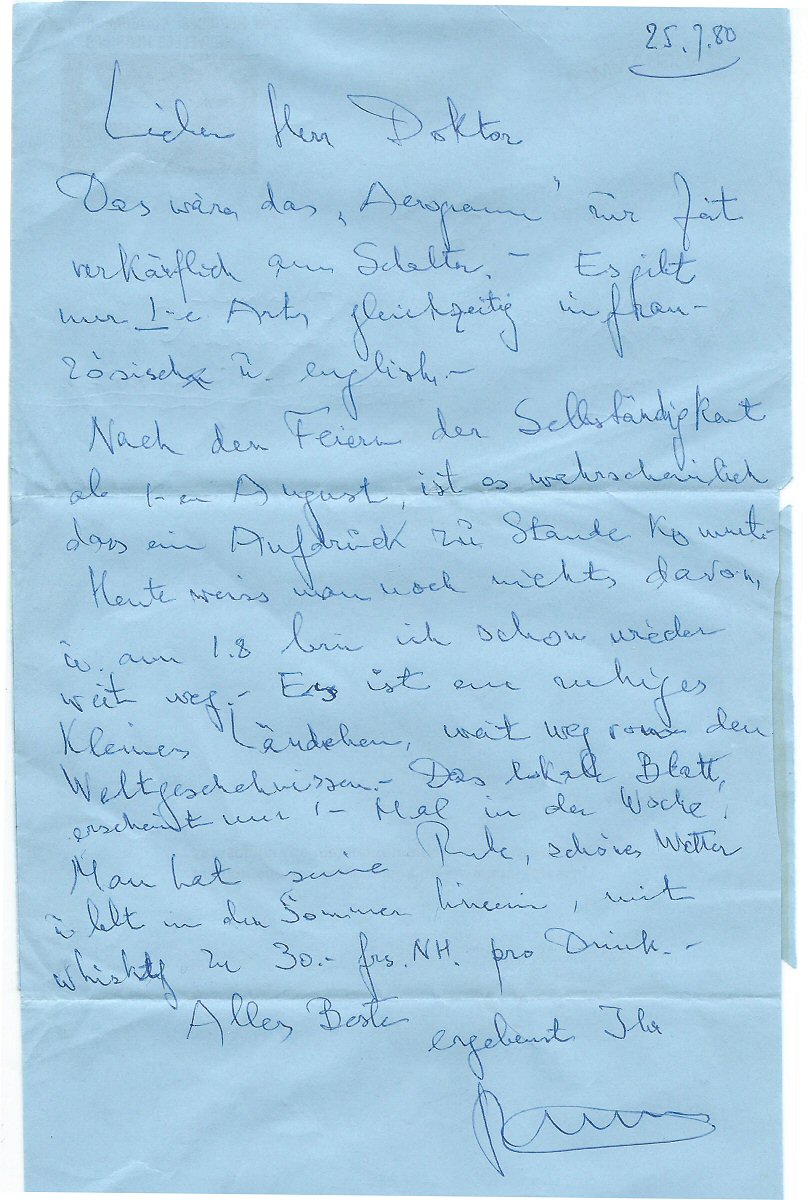 25.7.80
Lieber Herr Doktor
Das wäre das „Aerogramm" zur Zeit
verkäuflich am Schalter. - Es gibt
nur 1-e Art, gleichzeitig in fran-
zösisch u. english. -
Nach den Feiern der Selbständigkeit
ab 1-en August, ist es wahrscheinlich
dass ein Aufdruck zu Stande kommt. -
Heute weiss man noch nichts davon,
u. am 1.8 bin ich schon wieder
weit weg. - Es ist ein ruhiges
kleines Ländchen, weit weg von den
Weltgeschehnissen. - Das lokale Blatt,
erscheint nur 1- Mal in der Woche.
Man hat seine Ruhe, schönes Wetter
u lebt in den Sommer hinein, mit
whisky zu 30.- frs. NH. pro Drink. -
Alles Beste ergebenst Ihr